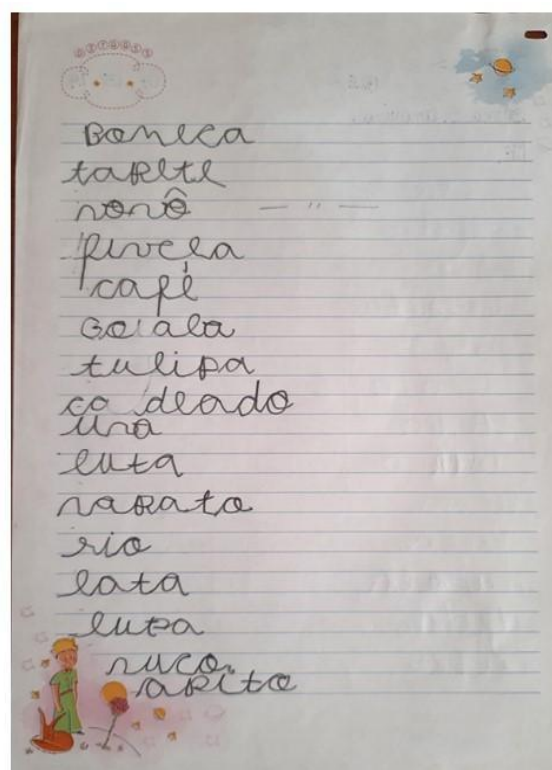 Boneca
tapete
vovô — " —
fivela
café
Goiala
tulipa
cadeado
uva
luta
rapato
rio
lata
lupa
suco
apito